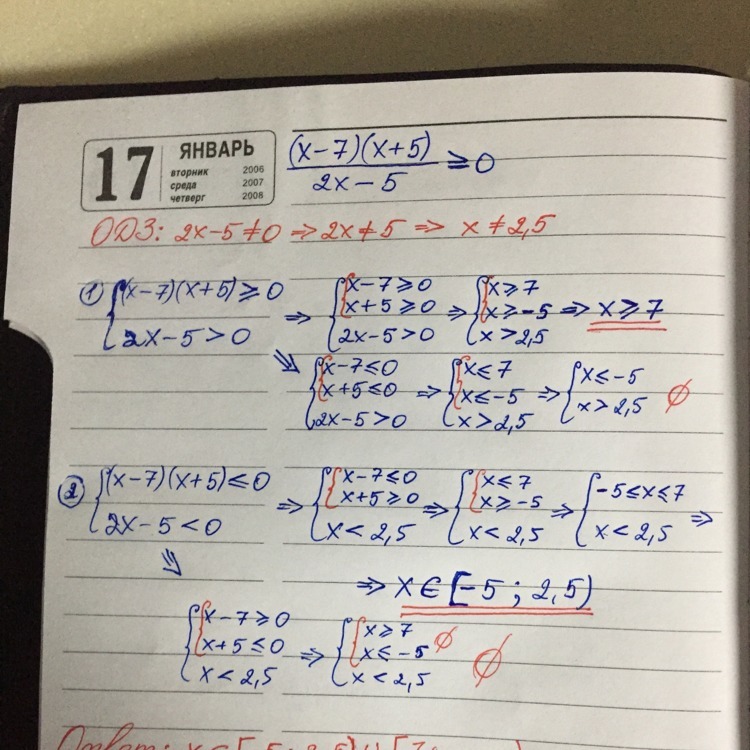 17 ЯНВАРЬ
вторник 2006
среда 2007
четверг 2008
(x-7)(x+5)
2x-5
≥0
ОДЗ: 2x-5≠0 ⇒ 2x≠5 ⇒ x≠2,5
1) {(x-7)(x+5)≥0
2x-5>0
⇒ {{x-7≥0
x+5≥0
2x-5>0
⇒ {{x≥7
x≥-5
x>2,5
⇒ x≥7
⇘ {{x-7≤0
x+5≤0
2x-5>0
⇒ {{x≤7
x≤-5
x>2,5
⇒ {x≤-5
x>2,5
∅
2) {(x-7)(x+5)≤0
2x-5<0
⇒ {{x-7≤0
x+5≥0
x<2,5
⇒ {{x≤7
x≥-5
x<2,5
⇒ {-5≤x≤7
x<2,5
⇒
⇒ x∈[-5; 2,5)
⇘
{{x-7≥0
x+5≤0
x<2,5
⇒ {{x≥7
x≤-5 ∅
x<2,5
∅
Ответ: x∈[-5; 2,5)∪[7;